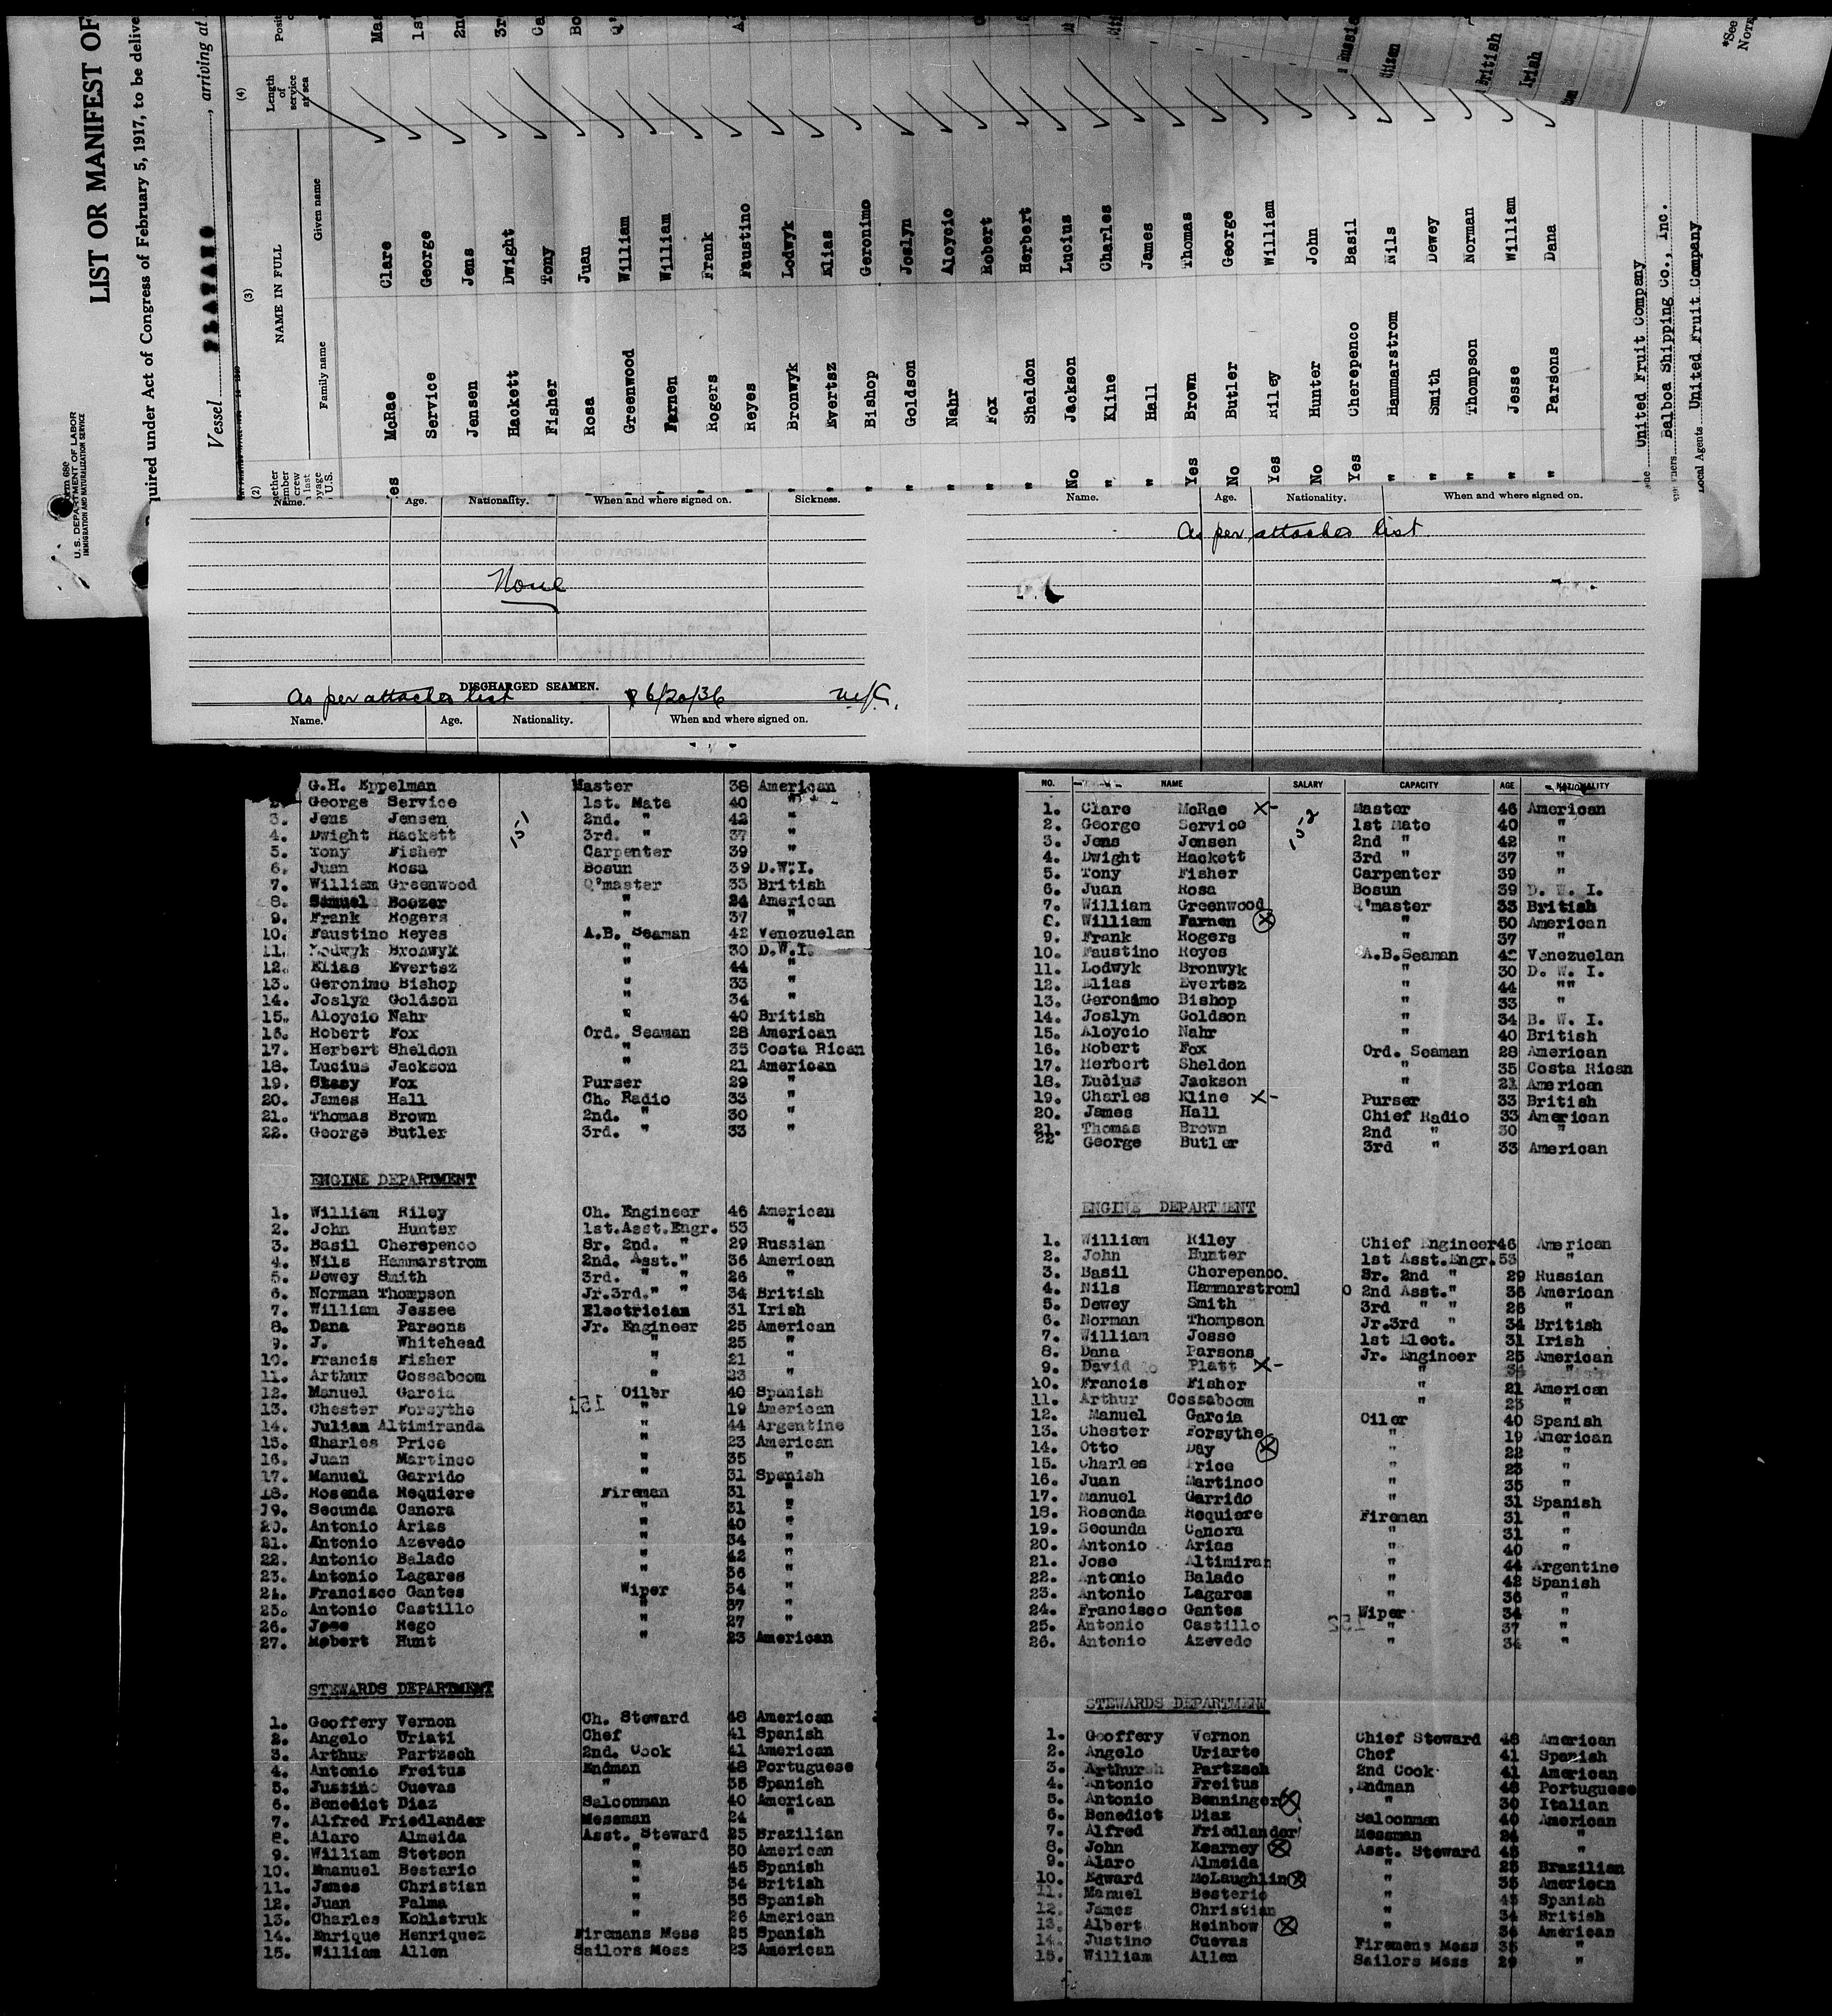 Form 680
U. S. DEPARTMENT OF LABOR
IMMIGRATION AND NATURALIZATION SERVICE
LIST OR MANIFEST OF
quired under Act of Congress of February 5, 1917, to be delive
Vessel PLATANO , arriving at
(2) (3) (4)
NAME IN FULL Length of service at sea
Family name Given name
McRae Clare
Service George
Jensen Jens
Hackett Dwight
Fisher Tony
Rosa Juan
Greenwood William
Farnen William
Rogers Frank
Reyes Faustino
Bronwyk Lodwyk
Evertsz Elias
Bishop Geronimo
Goldson Joslyn
Nahr Aloycio
Fox Robert
Sheldon Herbert
No Jackson Lucius
" Kline Charles
" Hall James
Yes Brown Thomas
No Butler George
Yes Riley William
No Hunter John
Yes Cherepenco Basil
" Hammarstrom Nils
" Smith Dewey
" Thompson Norman
" Jesse William
" Parsons Dana
United Fruit Company
Balboa Shipping Co., Inc.
Local Agents United Fruit Company
*See
British
Irish
Name. Age. Nationality. When and where signed on. Sickness.
None
DISCHARGED SEAMEN.
As per attaches list 6/20/36
Name. Age. Nationality. When and where signed on.
Name. Age. Nationality. When and where signed on.
As per attaches list
G.H. Eppelman Master 38 American
2. George Service 1st. Mate 40 "
3. Jens Jensen 2nd. " 42 "
4. Dwight Hackett 3rd. " 37 "
5. Tony Fisher Carpenter 39 "
6. Juan Rosa Bosun 39 D.W.I.
7. William Greenwood Q'master 33 British
8. Samuel Boozer " 24 American
9. Frank Rogers " 37 "
10. Faustino Reyes A.B. Seaman 42 Venezuelan
11. Lodwyk Bronwyk " 30 D.W.I.
12. Elias Evertsz " 44 "
13. Geronimo Bishop " 33 "
14. Joslyn Goldson " 34 "
15. Aloycio Nahr " 40 British
16. Robert Fox Ord. Seaman 28 American
17. Herbert Sheldon " 35 Costa Rican
18. Lucius Jackson " 21 American
19. Stasy Fox Purser 29 "
20. James Hall Ch. Radio 33 "
21. Thomas Brown 2nd. " 30 "
22. George Butler 3rd. " 33 "
ENGINE DEPARTMENT
1. William Riley Ch. Engineer 46 American
2. John Hunter 1st.Asst.Engr. 53 "
3. Basil Cherepenco Sr. 2nd. " 29 Russian
4. Nils Hammarstrom 2nd. Asst." 36 American
5. Dewey Smith 3rd. " " 26 "
6. Norman Thompson Jr.3rd." " 34 British
7. William Jessee Electrician 31 Irish
8. Dana Parsons Jr. Engineer 25 American
9. J. Whitehead " 25 "
10. Francis Fisher " 21 "
11. Arthur Cossaboom " 23 "
12. Manuel Garcia Oiler 40 Spanish
13. Chester Forsythe " 19 American
14. Julian Altimiranda " 44 Argentine
15. Charles Price " 23 American
16. Juan Martinco " 35 "
17. Manuel Garrido " 31 Spanish
18. Rosenda Requiere Fireman 31 "
19. Secunda Canora " 31 "
20. Antonio Arias " 40 "
21. Antonio Azevedo " 34 "
22. Antonio Balado " 42 "
23. Antonio Lagares " 36 "
24. Francisco Gantes Wiper 34 "
25. Antonio Castillo " 37 "
26. Jose Rego " 27 "
27. Robert Hunt " 23 American
STEWARDS DEPARTMENT
1. Geoffery Vernon Ch. Steward 48 American
2. Angelo Uriati Chef 41 Spanish
3. Arthur Partzsch 2nd. Cook 41 American
4. Antonio Freitus Endman 48 Portuguese
5. Justino Cuevas " 35 Spanish
6. Benedict Diaz Saloonman 40 American
7. Alfred Friedlander Messman 24 "
8. Alaro Almeida Asst. Steward 25 Brazilian
9. William Stetson " 30 American
10. Emanuel Bestario " 45 Spanish
11. James Christian " 34 British
12. Juan Palma " 35 Spanish
13. Charles Kohlstruk " 26 American
14. Enrique Henriquez Firemans Mess 25 Spanish
15. William Allen Sailors Mess 23 American
NO. NAME SALARY CAPACITY AGE NATIONALITY
1. Clare McRae X- Master 46 American
2. George Service 1st Mate 40 "
3. Jens Jensen 2nd " 42 "
4. Dwight Hackett 3rd " 37 "
5. Tony Fisher Carpenter 39 "
6. Juan Rosa Bosun 39 D. W. I.
7. William Greenwood Q'master 33 British
8. William Farnen X " 50 American
9. Frank Rogers " 37 "
10. Faustino Reyes A.B.Seaman 42 Venezuelan
11. Lodwyk Bronwyk " 30 D. W. I.
12. Elias Evertsz " 44 ""
13. Geronimo Bishop " 33 "
14. Joslyn Goldson " 34 B. W. I.
15. Aloycio Nahr " 40 British
16. Robert Fox Ord. Seaman 28 American
17. Herbert Sheldon " 35 Costa Rican
18. Lucius Jackson " 21 American
19. Charles Kline X- Purser 33 British
20. James Hall Chief Radio 33 American
21. Thomas Brown 2nd " 30 "
22 George Butler 3rd " 33 American
ENGINE DEPARTMENT
1. William Riley Chief Engineer 46 American
2. John Hunter 1st Asst.Engr. 53 "
3. Basil Cherepenco. Sr. 2nd " 29 Russian
4. Nils Hammarstrom 2nd Asst." 36 American
5. Dewey Smith 3rd " " 26 "
6. Norman Thompson Jr.3rd " 34 British
7. William Jesse 1st Elect. 31 Irish
8. Dana Parsons Jr. Engineer 25 American
9. David Platt X- " 34 "
10. Francis Fisher " 21 American
11. Arthur Cossaboom " 23 "
12. Manuel Garcia Oiler 40 Spanish
13. Chester Forsythe " 19 American
14. Otto Day X " 22 "
15. Charles Price " 23 "
16. Juan Martinco " 35 "
17. Manuel Garrido " 31 Spanish
18. Rosenda Requiere Fireman 31 "
19. Secunda Canora " 31 "
20. Antonio Arias " 40 "
21. Jose Altimiran " 44 Argentine
22. Antonio Balado " 42 Spanish
23. Antonio Lagares " 36 "
24. Francisco Gantes Wiper 34 "
25. Antonio Castillo " 37 "
26. Antonio Azevedo " 34 "
STEWARDS DEPARTMENT
1. Geoffery Vernon Chief Steward 48 American
2. Angelo Uriarte Chef 41 Spanish
3. Arthur Partzsch 2nd Cook 41 American
4. Antonio Freitus Endman 48 Portuguese
5. Antonio Benninger X " 30 Italian
6. Benedict Diaz Saloonman 40 American
7. Alfred Friedlander Messman 24 "
8. John Kearney X Asst. Steward 45 "
9. Alaro Almeida " 25 Brazilian
10. Edward McLaughlin X " 35 American
11. Manuel Besterio " 45 Spanish
12. James Christian " 34 British
13. Albert Reinbow X " 36 American
14. Justino Cuevas Firemens Mess 35 "
15. William Allen Sailors Mess 29 "